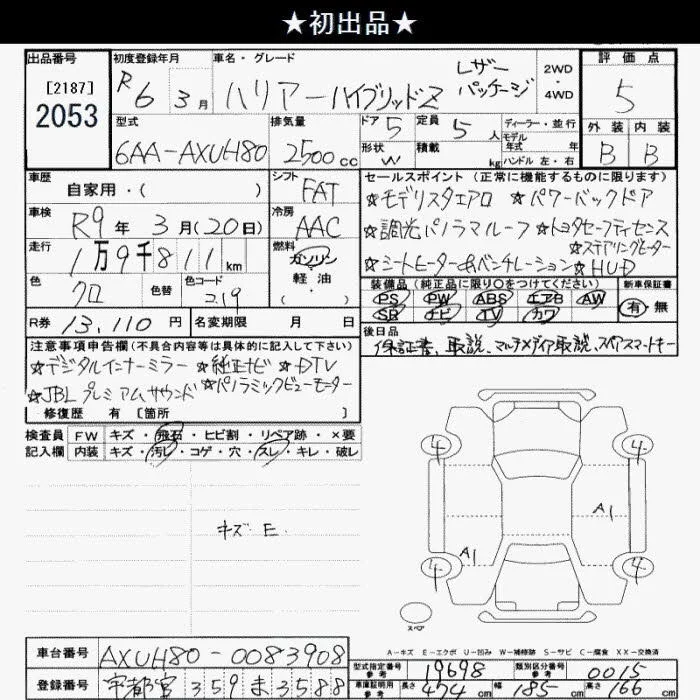 ★初出品★
出品番号
[2187]
2053
初度登録年月
R6年 3月
車名・グレード
ハリアーハイブリッドZ レザーパッケージ
2WD
・
4WD
評価点
5
外装 内装
B B
型式
6AA-AXUH80
排気量
2500cc
ドア 5
形状 W
定員 5人
積載 kg
ディーラー・並行
モデル年式 年
ハンドル 左・右
車歴
自家用・( )
シフト
FAT
車検
R9年 3月(20日)
冷房
AAC
走行
1万9千811km
燃料
ガソリン
軽油
( )
色
クロ
色替
色コード
219
R券 13,110円
名変期限 月 日
セールスポイント(正常に機能するものに限ります)
☆モデリスタエアロ ☆パワーバックドア
☆調光パノラマルーフ ☆トヨタセーフティセンス
☆ステアリングヒーター
☆シートヒーター&ベンチレーション ☆HUD
装備品(純正品に限り○をつけてください)
PS PW ABS エアB AW
SR ナビ TV カワ
新車保証書
有・無
後日品
保証書、取説、マルチメディア取説、スペアスマートキー
注意事項申告欄(不具合内容等は具体的に記入して下さい)
☆デジタルインナーミラー ☆純正ナビ ☆DTV
☆JBLプレミアムサウンド ☆パノラミックビューモニター
修復歴 有 [箇所 ]
検査員記入欄
FW キズ・飛石・ヒビ割・リペア跡・×要
内装 キズ・汚レ・コゲ・穴・スレ・キレ・破レ
キズ E
4 4
A1
A1
4 4
スペア
A-キズ E-エクボ U-凹み W-補修跡 S-サビ C-腐食 XX-交換済
車台番号 AXUH80-0083908
登録番号 宇都宮 359 ま 3588
型式指定番号 参考 19698
類別区分番号 参考 0015
車庫証明用 参考 長さ 474cm 幅 185cm 高さ 166cm